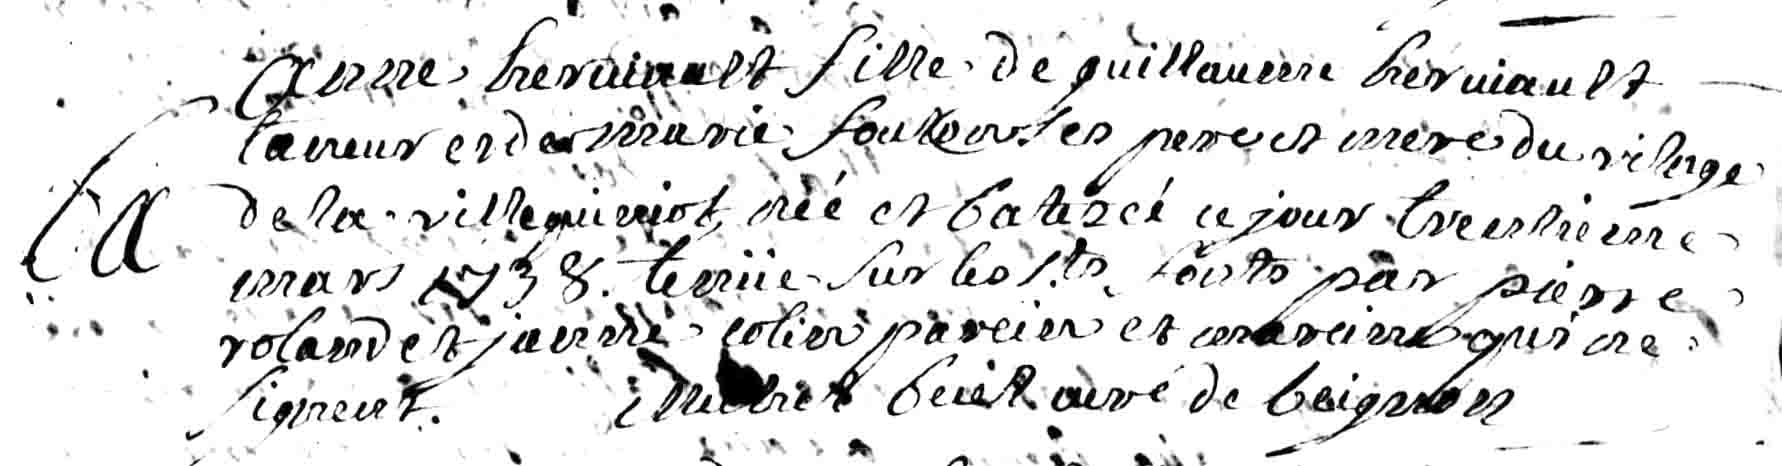 Anne herviault fille de guillaume herviault
taneur et de marie ses pere et mere du vilage
de la née et batizé ce jour trentieme
mars 1738. tenüe sur les sts fonts par pierre
roland et janne colin parein et mareine qui ne
signent. curé de beignon